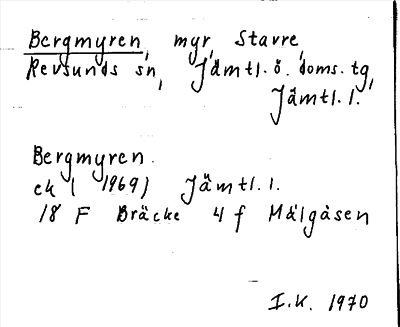 Bergmyren, myr, Stavre,
Revsunds sn, Jämtl. ö. doms. tg,
Jämtl. l.
Bergmyren.
ek ( 1969) Jämtl. l.
18 F Bräcke 4 f Målgåsen
I.K. 1970